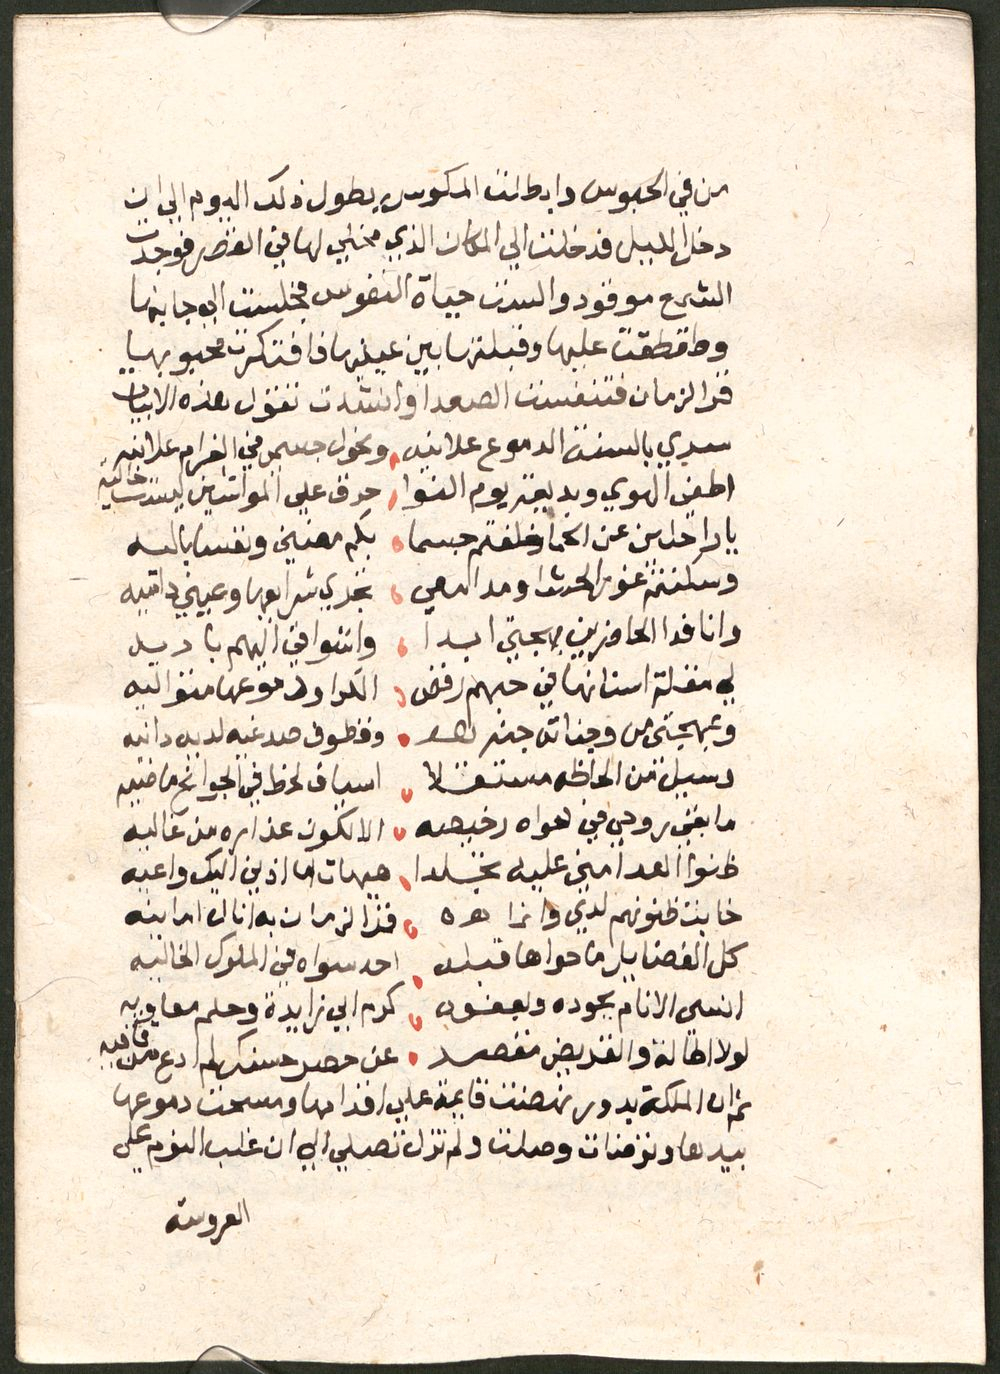 من في الحبوس وابطلت المكوس بطول ذلك اليوم الي ان
دخل الليل فدخلت الي المكان الذي مخلي لها في القصر فوجدت
الشمع موقود والست حياة النفوس فجلست الي جانبها
وطقطقت عليها وقبلتها بين عينيها فافتكرت محبوبها
قمر الزمان فتنفست الصعدا وانشدت تقول هذه الابيات
سري بالسنة الدموع علانيه ونحول جسمي في الغرام علانيه
اخفي الهوي ويذيعه يوم النوا حرق علي الواشين ليست خافيه
يا راحلين عن الحما خلفتم جسما بكم مضني ونفسا باليه
وسكنتم غور الحشا ومدامعي تجري شرابعها وعيني داميه
وانا فدا الحاضرين بمهجتي ابدا واشواقي اليهم باديه
لي مقلة انسانها في حبهم رفض الكرا ودموعها متواليه
وبمهجتي من وجناته جنة وقطوف صدغيه لديه دانيه
وسيل من الحاظه مستقتلا اسياف لحظ في الجوانح ماضيه
ما بقي روحي في هواه رخيصه الا لكون عذاره من غاليه
ظنوا العدا مني عليه تجلدا هيهات ما اذني اليك واعيه
خابت ظنونهم لدي وانما قمر الزمان به انال امانيه
كل الفضايل ما حواها قبله احد سواه في الملوك الخاليه
انسي الانام بجوده وبعفوه كرم ابن زايدة وحلم معاويه
لولا اطالة والقريض مقصر عن حصر حسنك لم ادع من قافيه
ثم ان الملكة بدور نهضت قايمة علي اقدامها ومسحت دموعها
بيدها وتوضات وصلت ولم تزل تصلي الي ان غلب النوم علي
العروسة